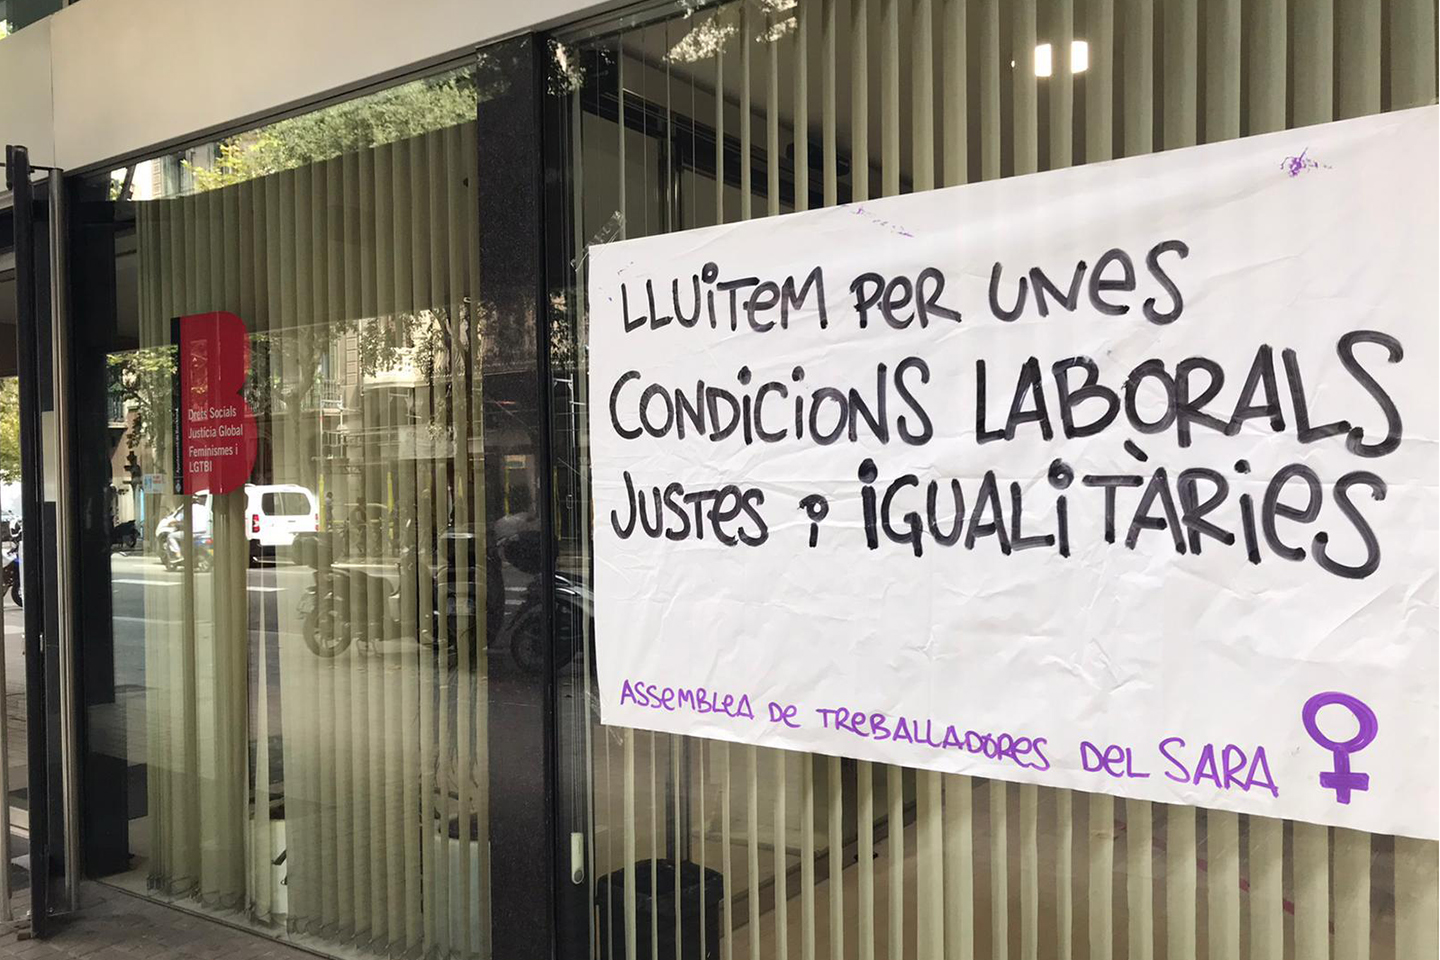 Drets Socials
Justícia Global
Feminismes i
LGTBI
LLUITEM PER UNES
CONDICIONS LABORALS
JUSTES I IGUALITÀRIES
ASSEMBLEA DE TREBALLADORES DEL SARA